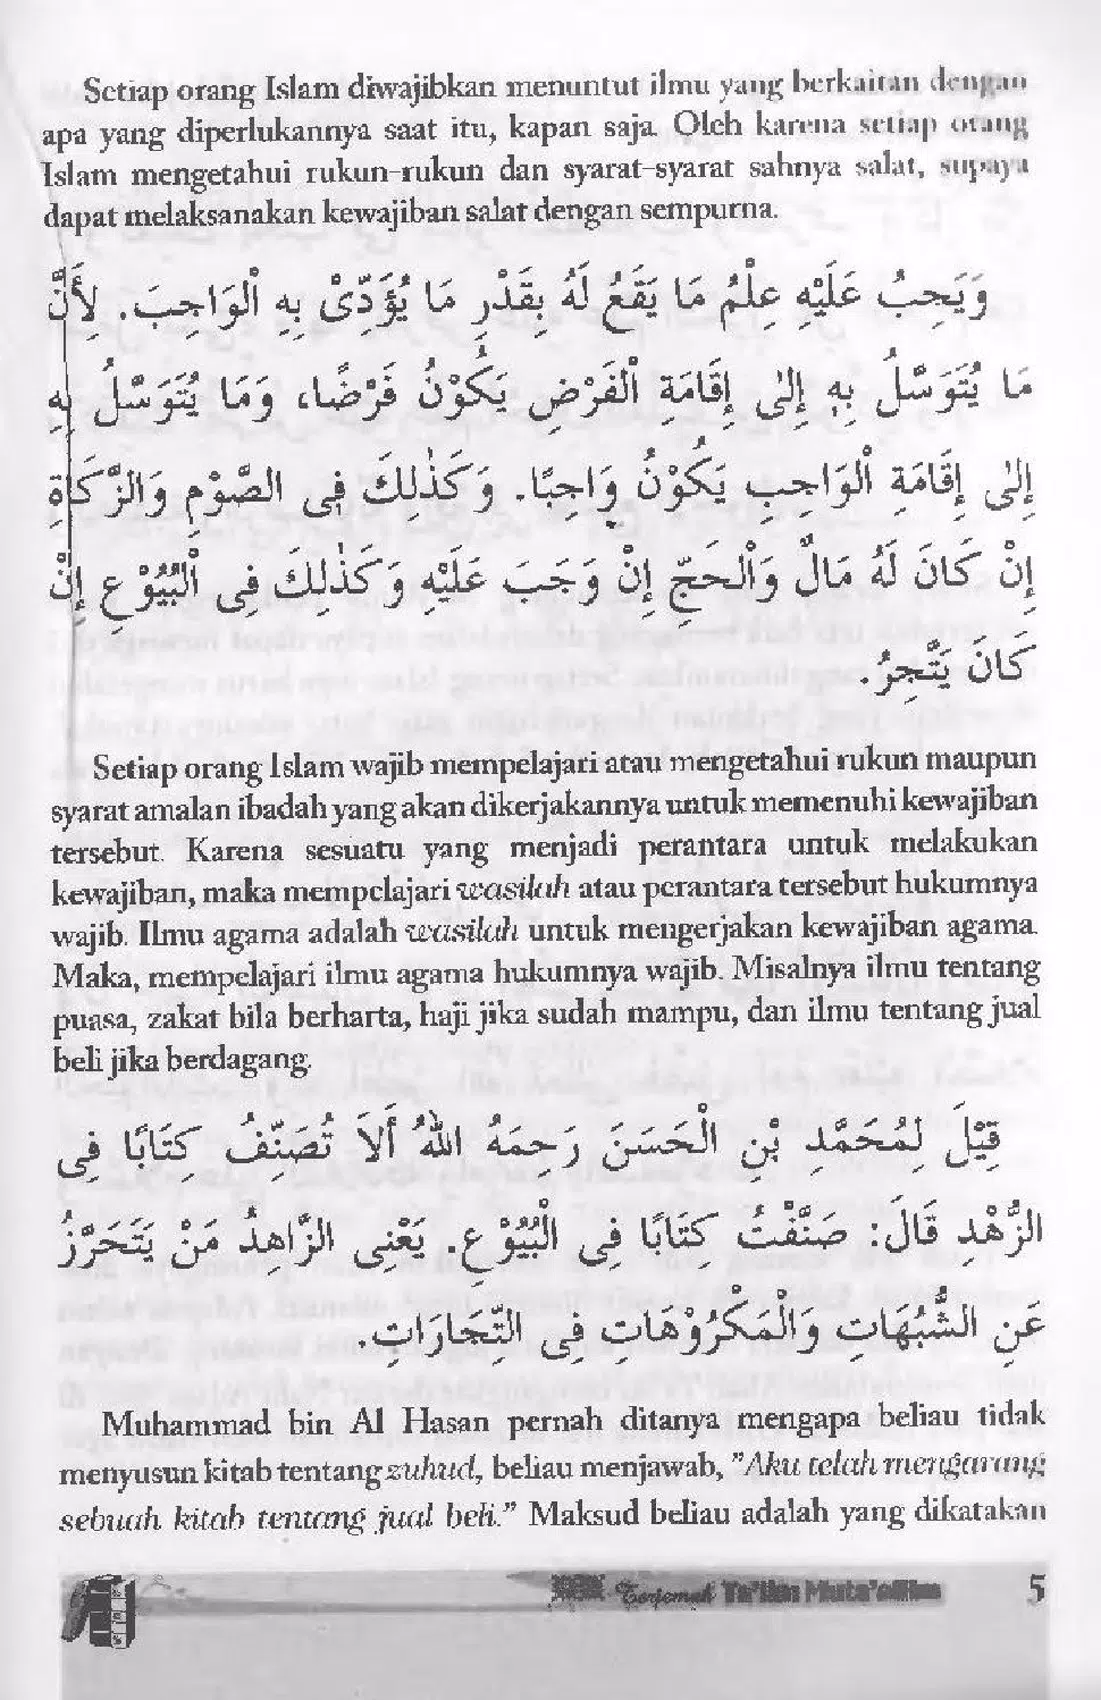 Setiap orang Islam diwajibkan menuntut ilmu yang berkaitan dengan
apa yang diperlukannya saat itu, kapan saja. Oleh karena setiap orang
Islam mengetahui rukun-rukun dan syarat-syarat sahnya salat, supaya
dapat melaksanakan kewajiban salat dengan sempurna.
وَيَجِبُ عَلَيْهِ عِلْمُ مَا يَقَعُ لَهُ بِقَدْرِ مَا يُؤَدِّىْ بِهِ الْوَاجِبَ. لِأَنَّ
مَا يُتَوَسَّلُ بِهِ إِلىٰ إِقَامَةِ الْفَرْضِ يَكُوْنُ فَرْضًا، وَمَا يُتَوَسَّلُ بِهِ
إِلىٰ إِقَامَةِ الْوَاجِبِ يَكُوْنُ وَاجِبًا. وَكَذٰلِكَ فِى الصَّوْمِ وَالزَّكَاةِ
إِنْ كَانَ لَهُ مَالٌ وَالْحَجِّ إِنْ وَجَبَ عَلَيْهِ وَكَذٰلِكَ فِى الْبُيُوْعِ إِنْ
كَانَ يَتَّجِرُ.
Setiap orang Islam wajib mempelajari atau mengetahui rukun maupun
syarat amalan ibadah yang akan dikerjakannya untuk memenuhi kewajiban
tersebut. Karena sesuatu yang menjadi perantara untuk melakukan
kewajiban, maka mempelajari wasilah atau perantara tersebut hukumnya
wajib. Ilmu agama adalah wasilah untuk mengerjakan kewajiban agama.
Maka, mempelajari ilmu agama hukumnya wajib. Misalnya ilmu tentang
puasa, zakat bila berharta, haji jika sudah mampu, dan ilmu tentang jual
beli jika berdagang.
قِيْلَ لِمُحَمَّدِ بْنِ الْحَسَنَ رَحِمَهُ اللهُ أَلاَ تُصَنِّفُ كِتَابًا فِى
الزُّهْدِ قَالَ: صَنَّفْتُ كِتَابًا فِى الْبُيُوْعِ. يَعْنِى الزَّاهِدُ مَنْ يَتَحَرَّزُ
عَنِ الشُّبُهَاتِ وَالْمَكْرُوْهَاتِ فِى التِّجَارَاتِ.
Muhammad bin Al Hasan pernah ditanya mengapa beliau tidak
menyusun kitab tentang zuhud, beliau menjawab, "Aku telah mengarang
sebuah kitab tentang jual beli." Maksud beliau adalah yang dikatakan
Terjemah Ta'lim Muta'allim 5